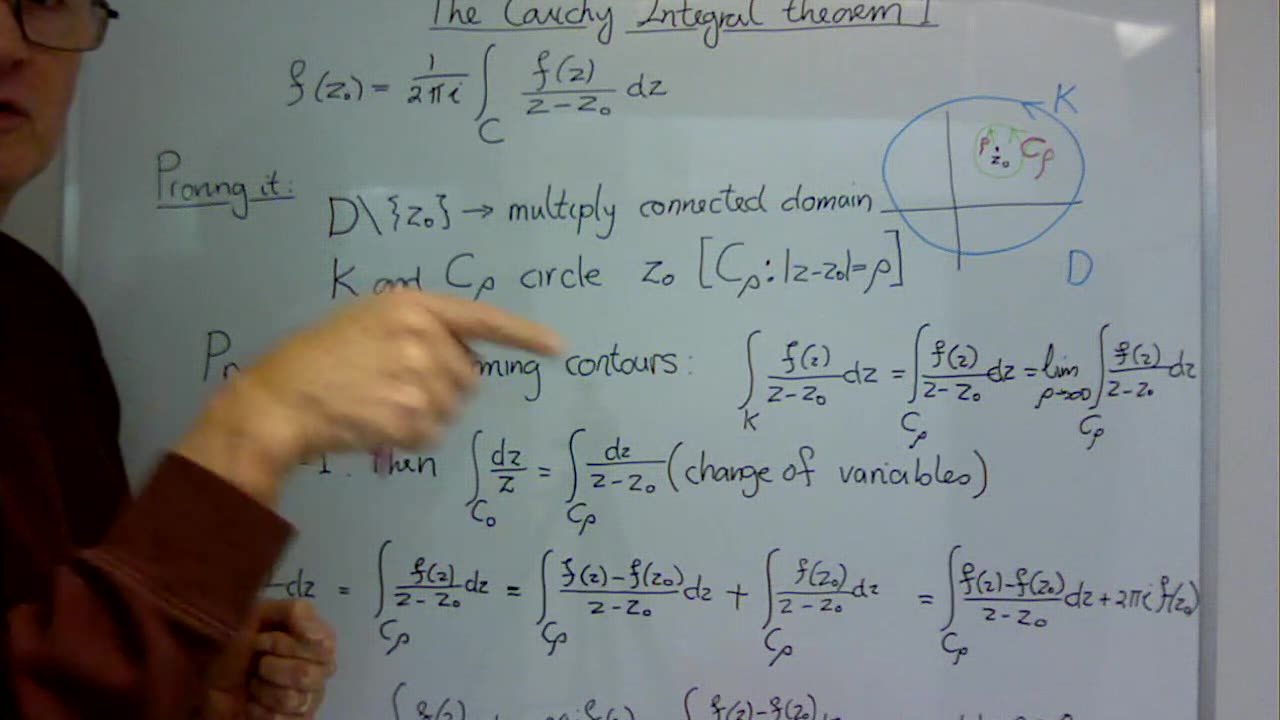 The Cauchy Integral theorem I
f(z₀) = 1/2πi ∫_C f(z)/z-z₀ dz
K
ρ z₀ C_ρ
D
Proving it:
D\{z₀} → multiply connected domain
K and C_ρ circle z₀ [C_ρ: |z-z₀|=ρ]
ming contours: ∫_K f(z)/z-z₀ dz = ∫_{C_ρ} f(z)/z-z₀ dz = lim_{ρ→∞} ∫_{C_ρ} f(z)/z-z₀ dz
-1. Then ∫_{C₀} dz/z = ∫_{C_ρ} dz/z-z₀ (change of variables)
dz = ∫_{C_ρ} f(z)/z-z₀ dz = ∫_{C_ρ} f(z)-f(z₀)/z-z₀ dz + ∫_{C_ρ} f(z₀)/z-z₀ dz = ∫_{C_ρ} f(z)-f(z₀)/z-z₀ dz + 2πi f(z₀)